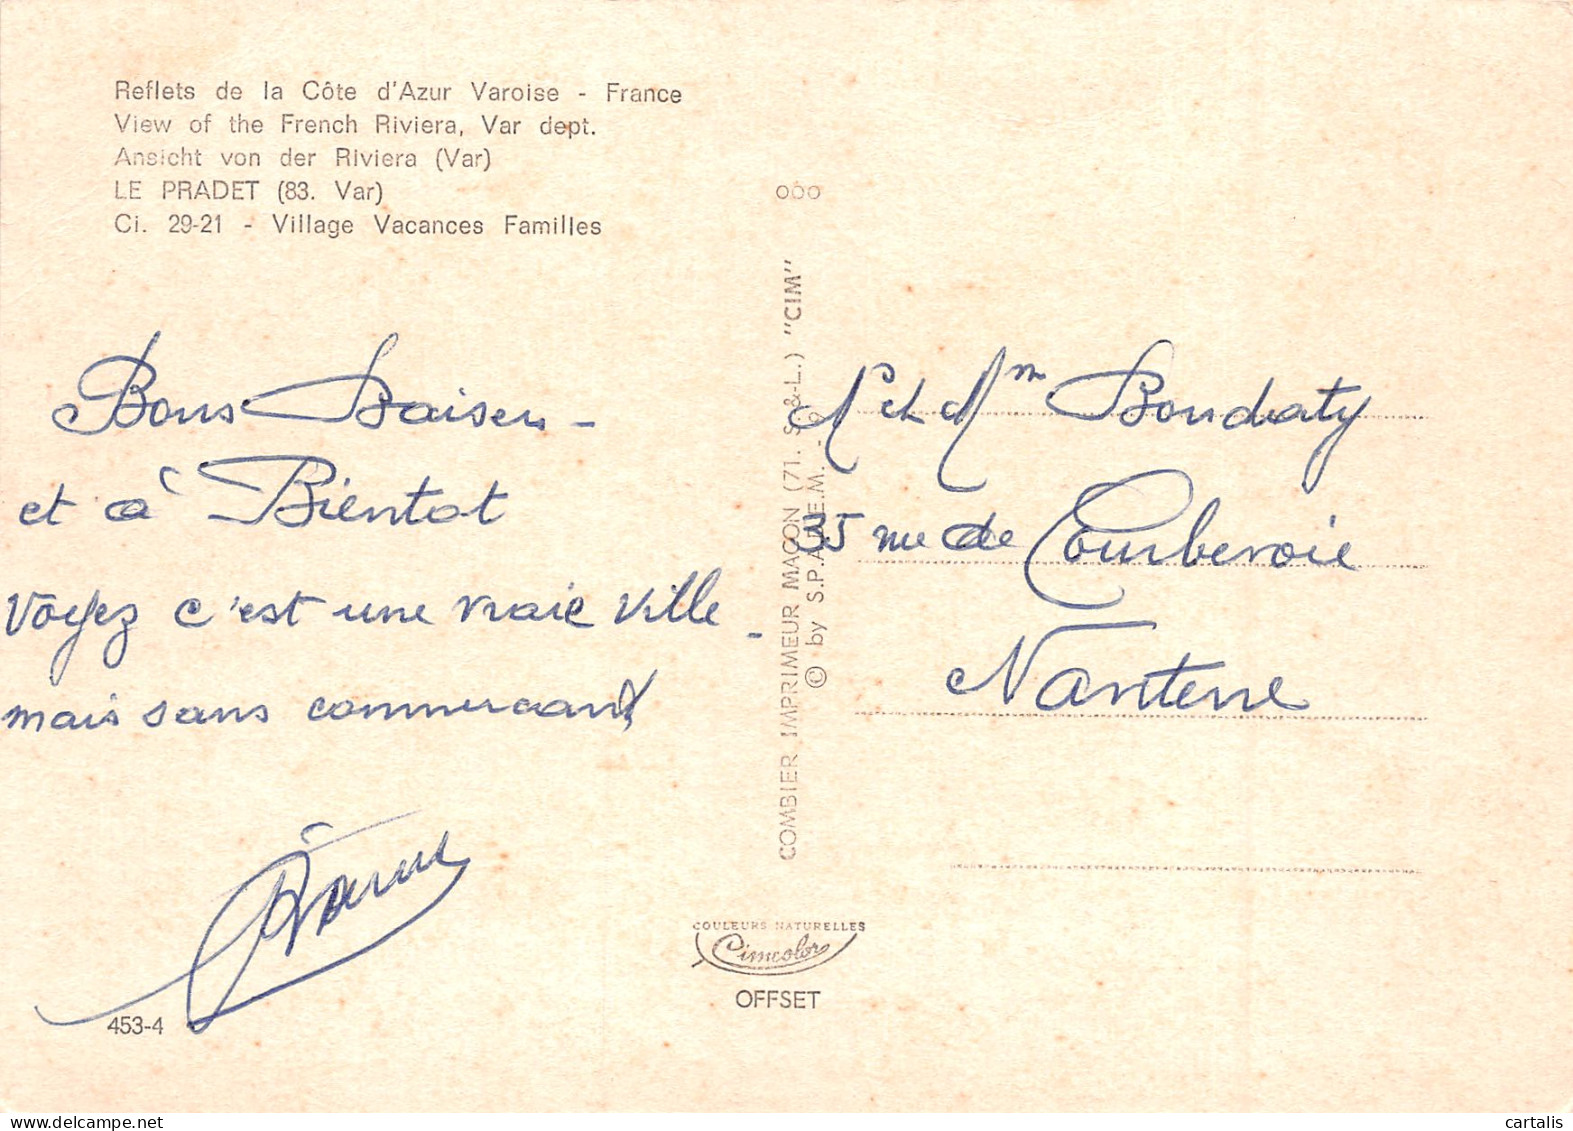 Reflets de la Côte d'Azur Varoise - France
View of the French Riviera, Var dept.
Ansicht von der Riviera (Var)
LE PRADET (83. Var)
Ci. 29-21 - Village Vacances Familles
Bons Baisers -
et à Bientot
Voyez c'est une vraie ville -
mais sans commerçant
453-4
COMBIER IMPRIMEUR MACON (71. S.-&-L.) "CIM"
© by S.P.A.D.E.M. - 9
COULEURS NATURELLES
Cimcolor
OFFSET
Mr et Mm Boudraty
35 rue de Courbevoie
Nanterre
cartalis